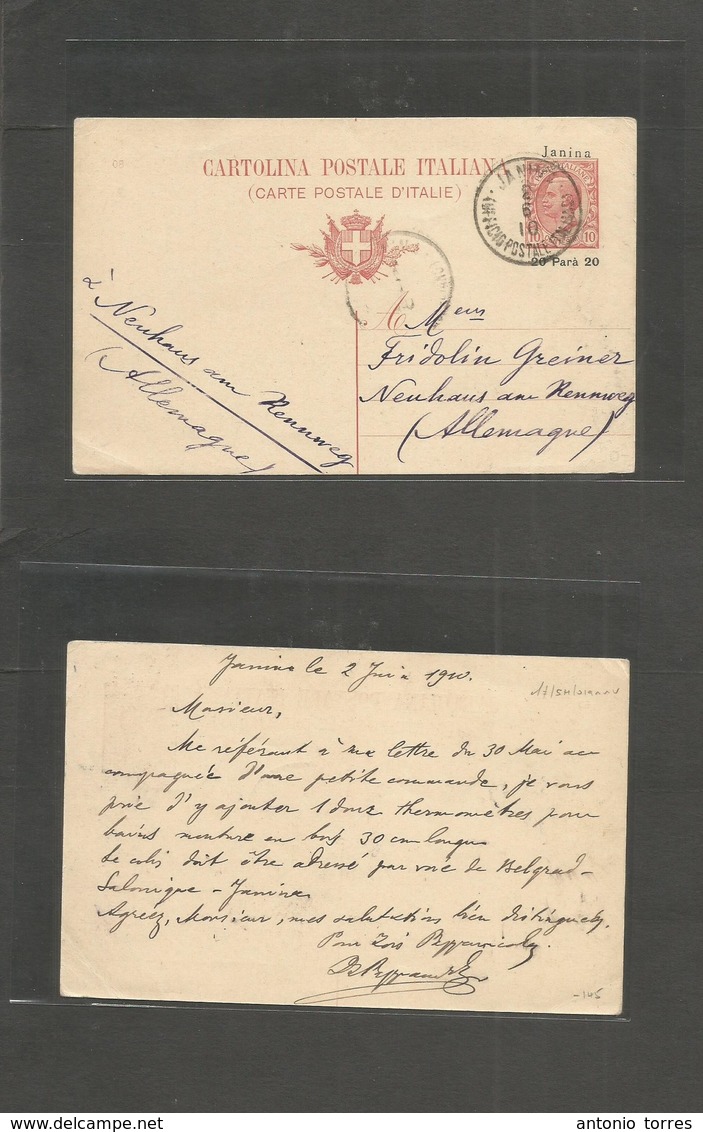 08
Janina
CARTOLINA POSTALE ITALIANA
(CARTE POSTALE D'ITALIE)
JANINA
2 6 10
UFFICIO POSTALE ITALIANO
10 10
20 Parà 20
A Meus
Fridolin Greiner
Neuhaus am Rennweg
(Allemagne)
à Neuhaus am Rennweg
(Allemagne)
Janina le 2 Juin 1910.
Monsieur,
Me référant à ma lettre du 30 Mai ac
compagnée d'une petite commande, je vous
prie d'y ajouter 1 douz thermomètres pour
bains monture en bois 30 cm longue
Le colis doit être adressé par voie de Belgrad-
Salonique - Janina
Agréez, Monsieur, mes salutations bien distinguées.
Pour
-145
antonio torres